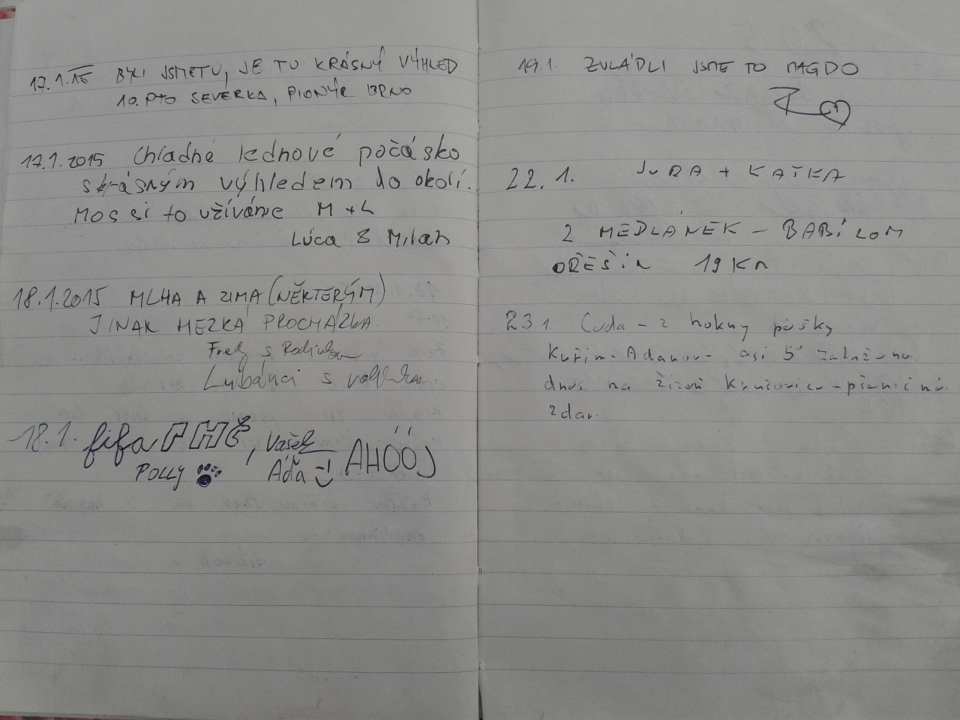 17.1.15 BYLI JSME TU, JE TU KRÁSNÝ VÝHLED
10. PTO SEVERKA, PIONÝR BRNO
17.1.2015 Chladné lednové počásko
s krásným výhledem do okolí.
Moc si to užíváme M + L
Lúca & Milan
18.1.2015 MLHA A ZIMA (NĚKTERÝM)
JINAK HEZKÁ PROCHÁZKA
Fredy s
s
18.1. fifa PHČ, Vašek
POLLY Áďa AHÓÓJ
19.1. ZVLÁDLI JSME TO MAGDO
22.1. JURA + KAŤKA
Z MEDLÁNEK - BABÍ LOM
OŘEŠÍN 19 KM
23.1 Cuda - z hokny pěšky
Kuřim - Adamov - asi 5
dnes na žízeň Krušovice -
zdar.